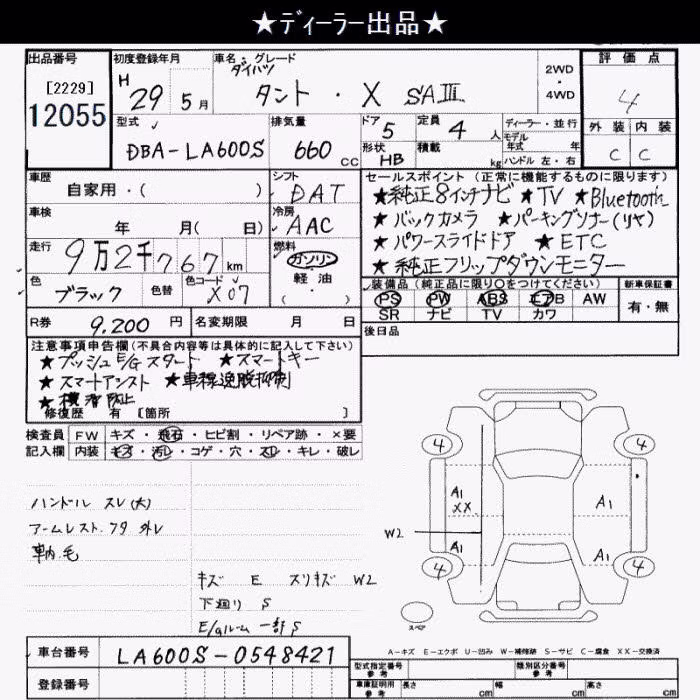 ★ディーラー出品★
出品番号 初度登録年月 車名・グレード 評価点
[2229] H 29年 5月 ダイハツ タント・X SAⅢ 2WD・4WD 4
12055
型式 排気量 ドア 5 定員 4人 ディーラー・並行 外装 内装
DBA-LA600S 660cc 形状 HB 積載 kg モデル年式 年 ハンドル 左・右 C C
車歴 自家用・( ) シフト DAT
車検 年 月( 日) 冷房 AAC
走行 9万2千767km 燃料 ガソリン 軽油 ( )
色 ブラック 色替 色コード X07
R券 9.200円 名変期限 月 日
セールスポイント(正常に機能するものに限ります)
★純正8インチナビ ★TV ★Bluetooth
★バックカメラ ★パーキングソナー(リヤ)
★パワースライドドア ★ETC
★純正フリップダウンモニター
装備品(純正品に限り○をつけてください) 新車保証書
PS PW ABS エアB AW 有・無
SR ナビ TV カワ
後日品
注意事項申告欄(不具合内容等は具体的に記入して下さい)
★プッシュE/Gスタート ★スマートキー
★スマートアシスト ★車線逸脱抑制
★横滑防止
修復歴 有 [箇所 ]
検査員 FW キズ・飛石・ヒビ割・リペア跡・×要
記入欄 内装 キズ・汚レ・コゲ・穴・スレ・キレ・破レ
ハンドル スレ(大)
アームレスト.フタ 外レ
車内毛
キズ E スリキズ W2
下廻り S
E/gルーム 一部S
4 4
A1 XX A1
W2
A1 A1
4 4
スペア
A-キズ E-エクボ U-凹み W-補修跡 S-サビ C-腐食 XX-交換済
車台番号 LA600S-0548421
登録番号
型式指定番号 参考 類別区分番号 参考
車庫証明用 参考 長さ cm 幅 cm 高さ cm